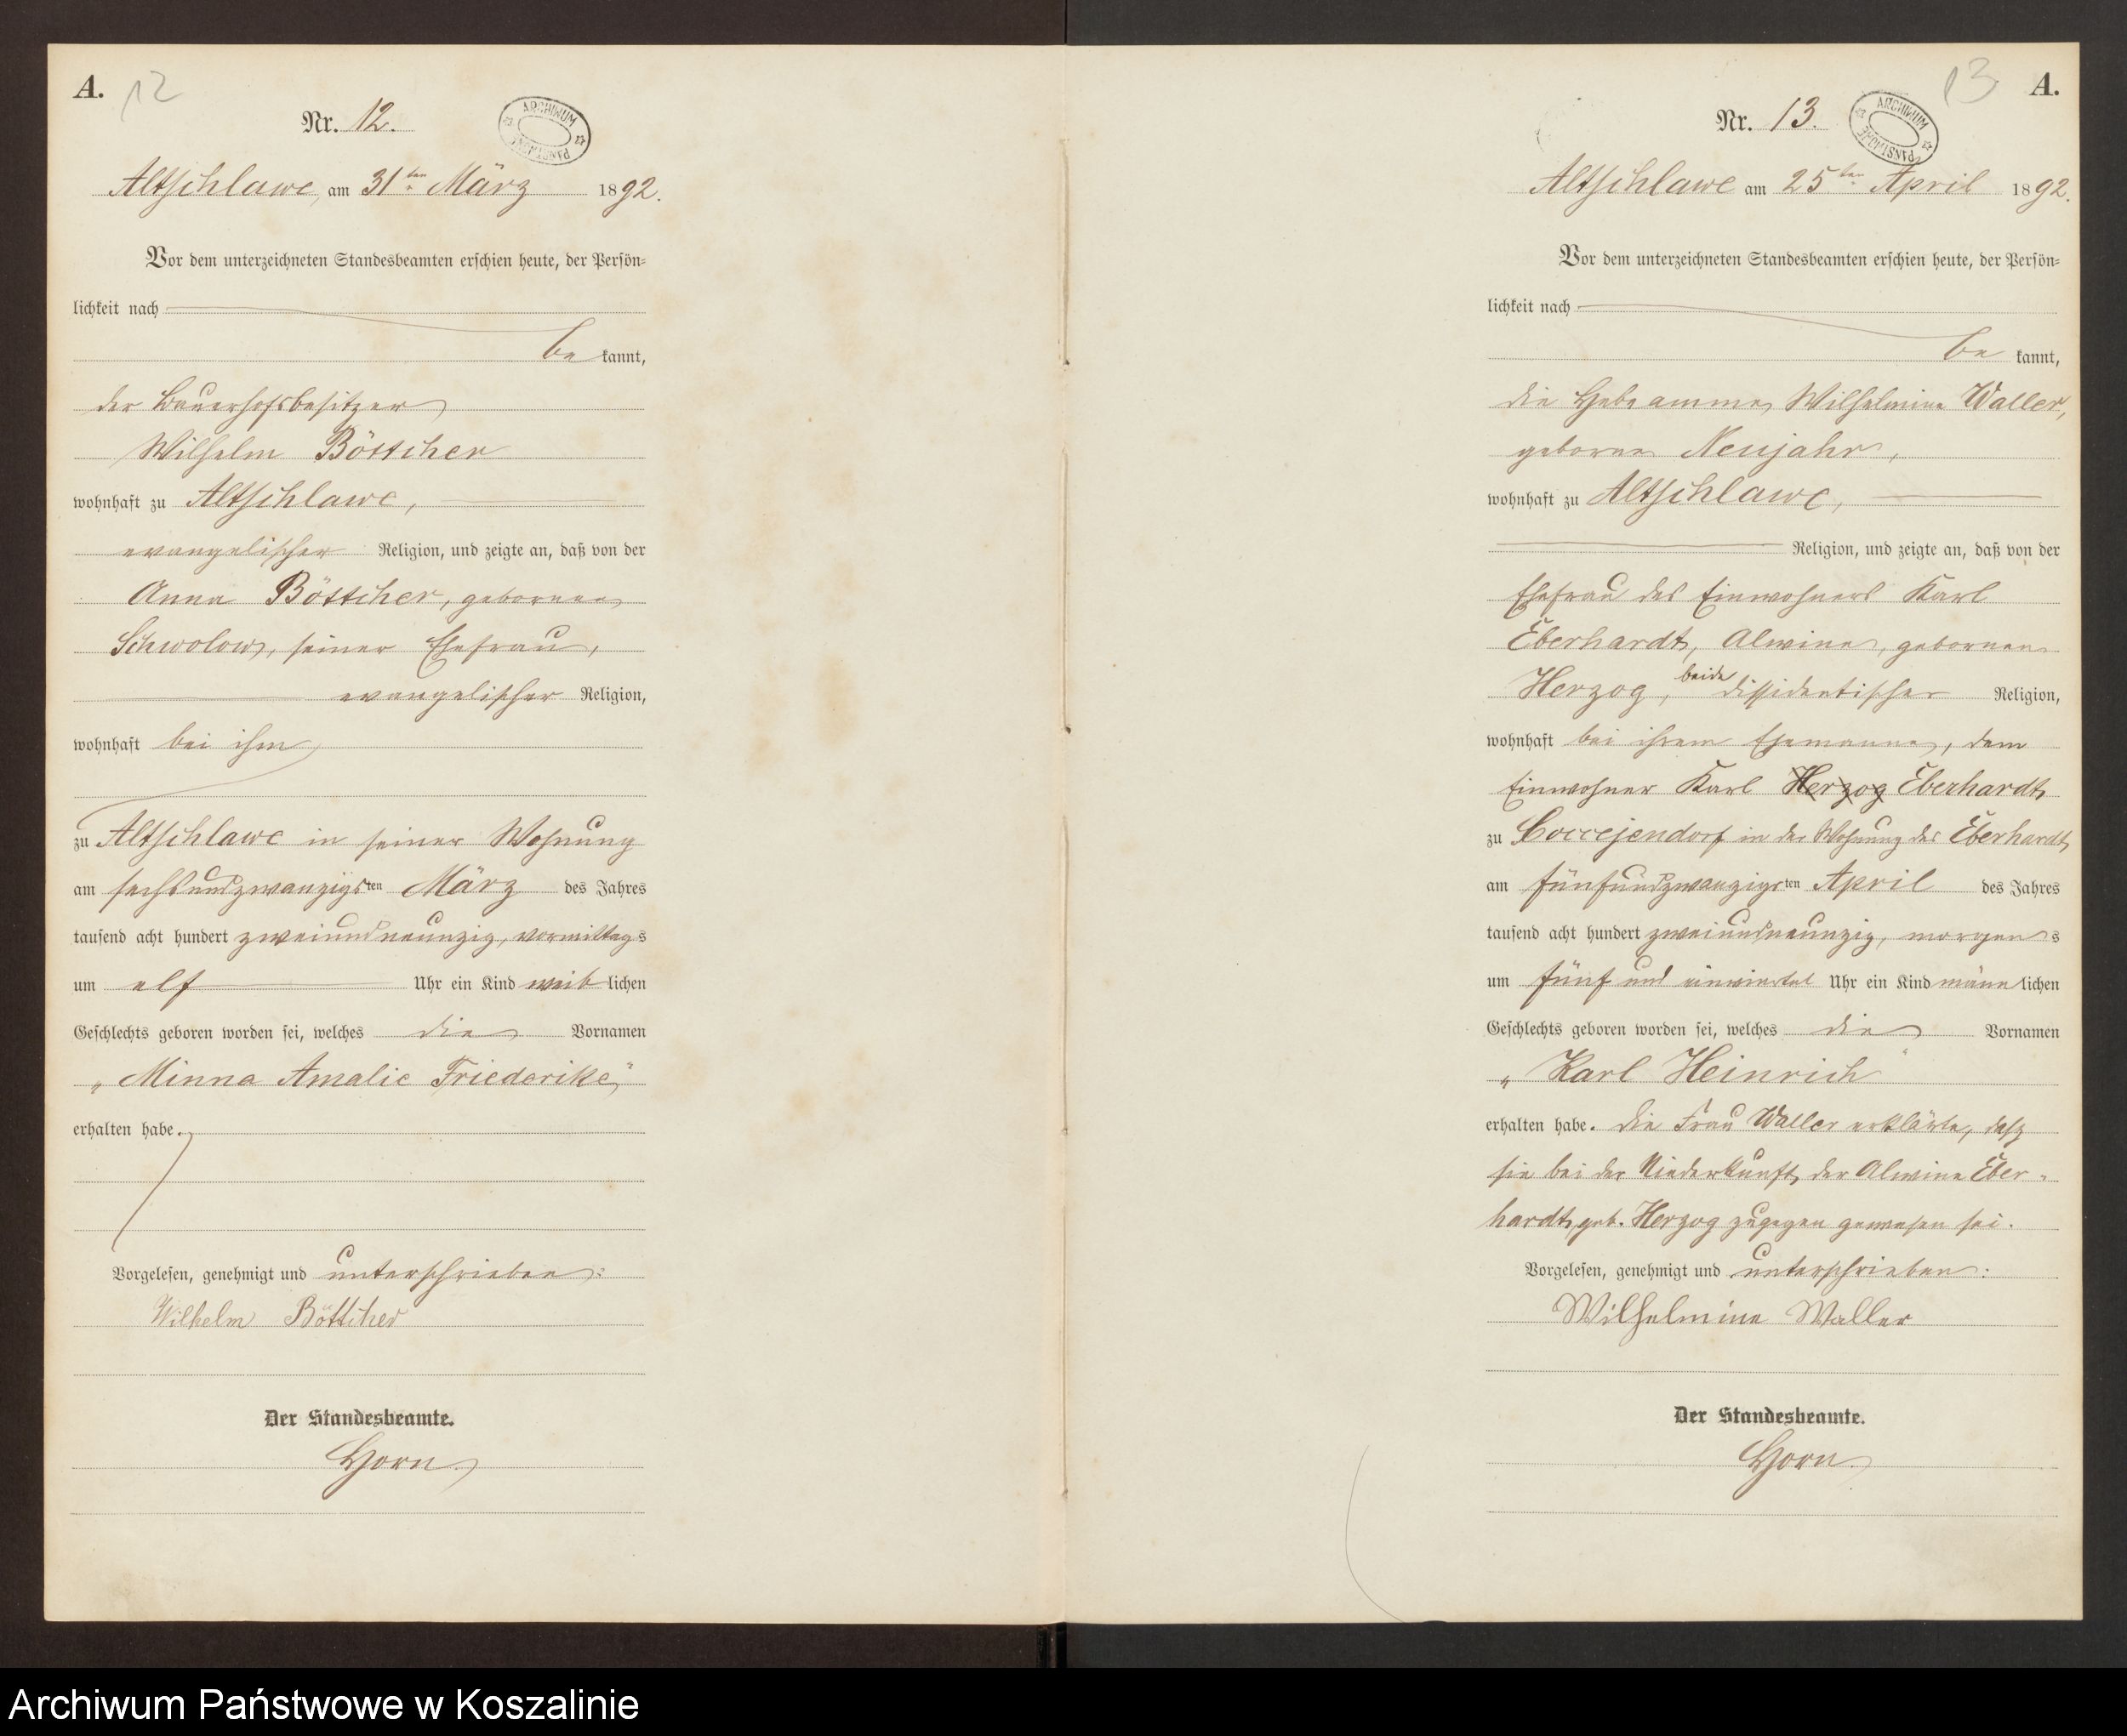 A.
12
Nr. 12.
ARCHIWUM PAŃSTWOWE
Altschlawe, am 31ten März 1892.
Vor dem unterzeichneten Standesbeamten erschien heute, der Persön-
lichkeit nach
be kannt,
der Bauerhofsbesitzer
Wilhelm Böttcher
wohnhaft zu Altschlawe,
evangelischer Religion, und zeigte an, daß von der
Anna Böttcher, geborenen
Schwolow, seiner Ehefrau,
evangelischer Religion,
wohnhaft bei ihm
zu Altschlawe in seiner Wohnung
am sechsundzwanzigsten März des Jahres
tausend acht hundert zweiundneunzig, vormittags
um elf Uhr ein Kind weiblichen
Geschlechts geboren worden sei, welches die Vornamen
„Minna Amalie Friederike"
erhalten habe.
Vorgelesen, genehmigt und unterschrieben:
Wilhelm Böttcher
Der Standesbeamte.
Horn
13
A.
Nr. 13.
ARCHIWUM PAŃSTWOWE
Altschlawe am 25ten April 1892.
Vor dem unterzeichneten Standesbeamten erschien heute, der Persön-
lichkeit nach
be kannt,
die Hebeamme Wilhelmine Waller,
geborne Neujahr,
wohnhaft zu Altschlawe,
Religion, und zeigte an, daß von der
Ehefrau des Einwohners Karl
Eberhardt, Alwine, gebornen
Herzog, beide dissidentischer Religion,
wohnhaft bei ihrem Ehemanne, dem
Einwohner Karl Herzog Eberhardt
zu Coccejendorf in der Wohnung des Eberhardt
am fünfundzwanzigsten April des Jahres
tausend acht hundert zweiundneunzig, morgens
um fünf und einviertel Uhr ein Kind männlichen
Geschlechts geboren worden sei, welches die Vornamen
„Karl Heinrich"
erhalten habe. Die Frau Waller erklärte, daß
sie bei der Niederkunft der Alwine Eber-
hardt, geb. Herzog zugegen gewesen sei.
Vorgelesen, genehmigt und unterschrieben:
Wilhelmine Waller
Der Standesbeamte.
Horn
Archiwum Państwowe w Koszalinie